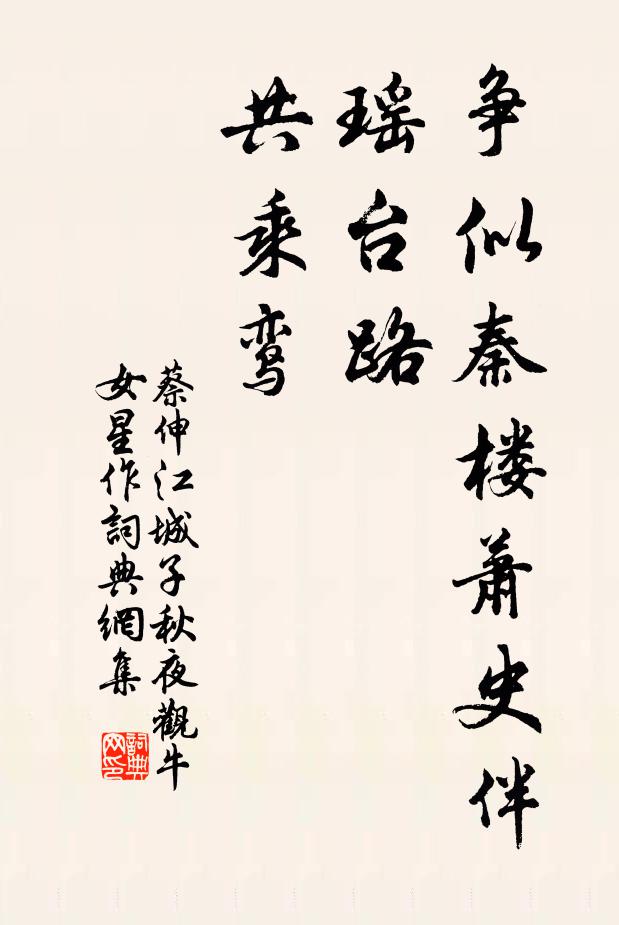 争似秦楼萧史伴
瑶台路
共乘鸾
蔡伸江城子秋夜觀牛
女星作詞典網集
詞典
网印